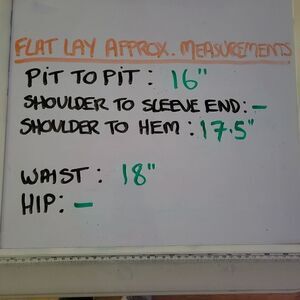 FLAT LAY APPROX. MEASUREMENTS
PIT TO PIT : 16"
SHOULDER TO SLEEVE END: -
SHOULDER TO HEM : 17.5"
WAIST : 18"
HIP: -